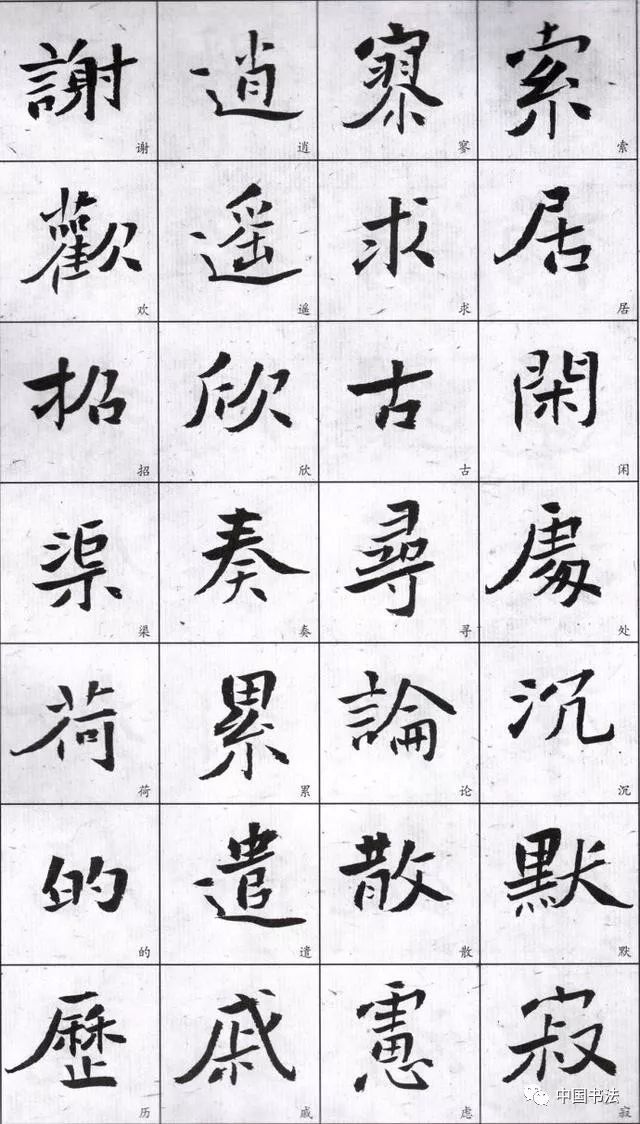 索居閑處沉默寂
索居闲处沉默寂
寥求古尋論散慮
寥求古寻论散虑
逍遥欣奏累遣戚
逍遥欣奏累遣戚
謝歡招渠荷的歷
谢欢招渠荷的历
中国书法